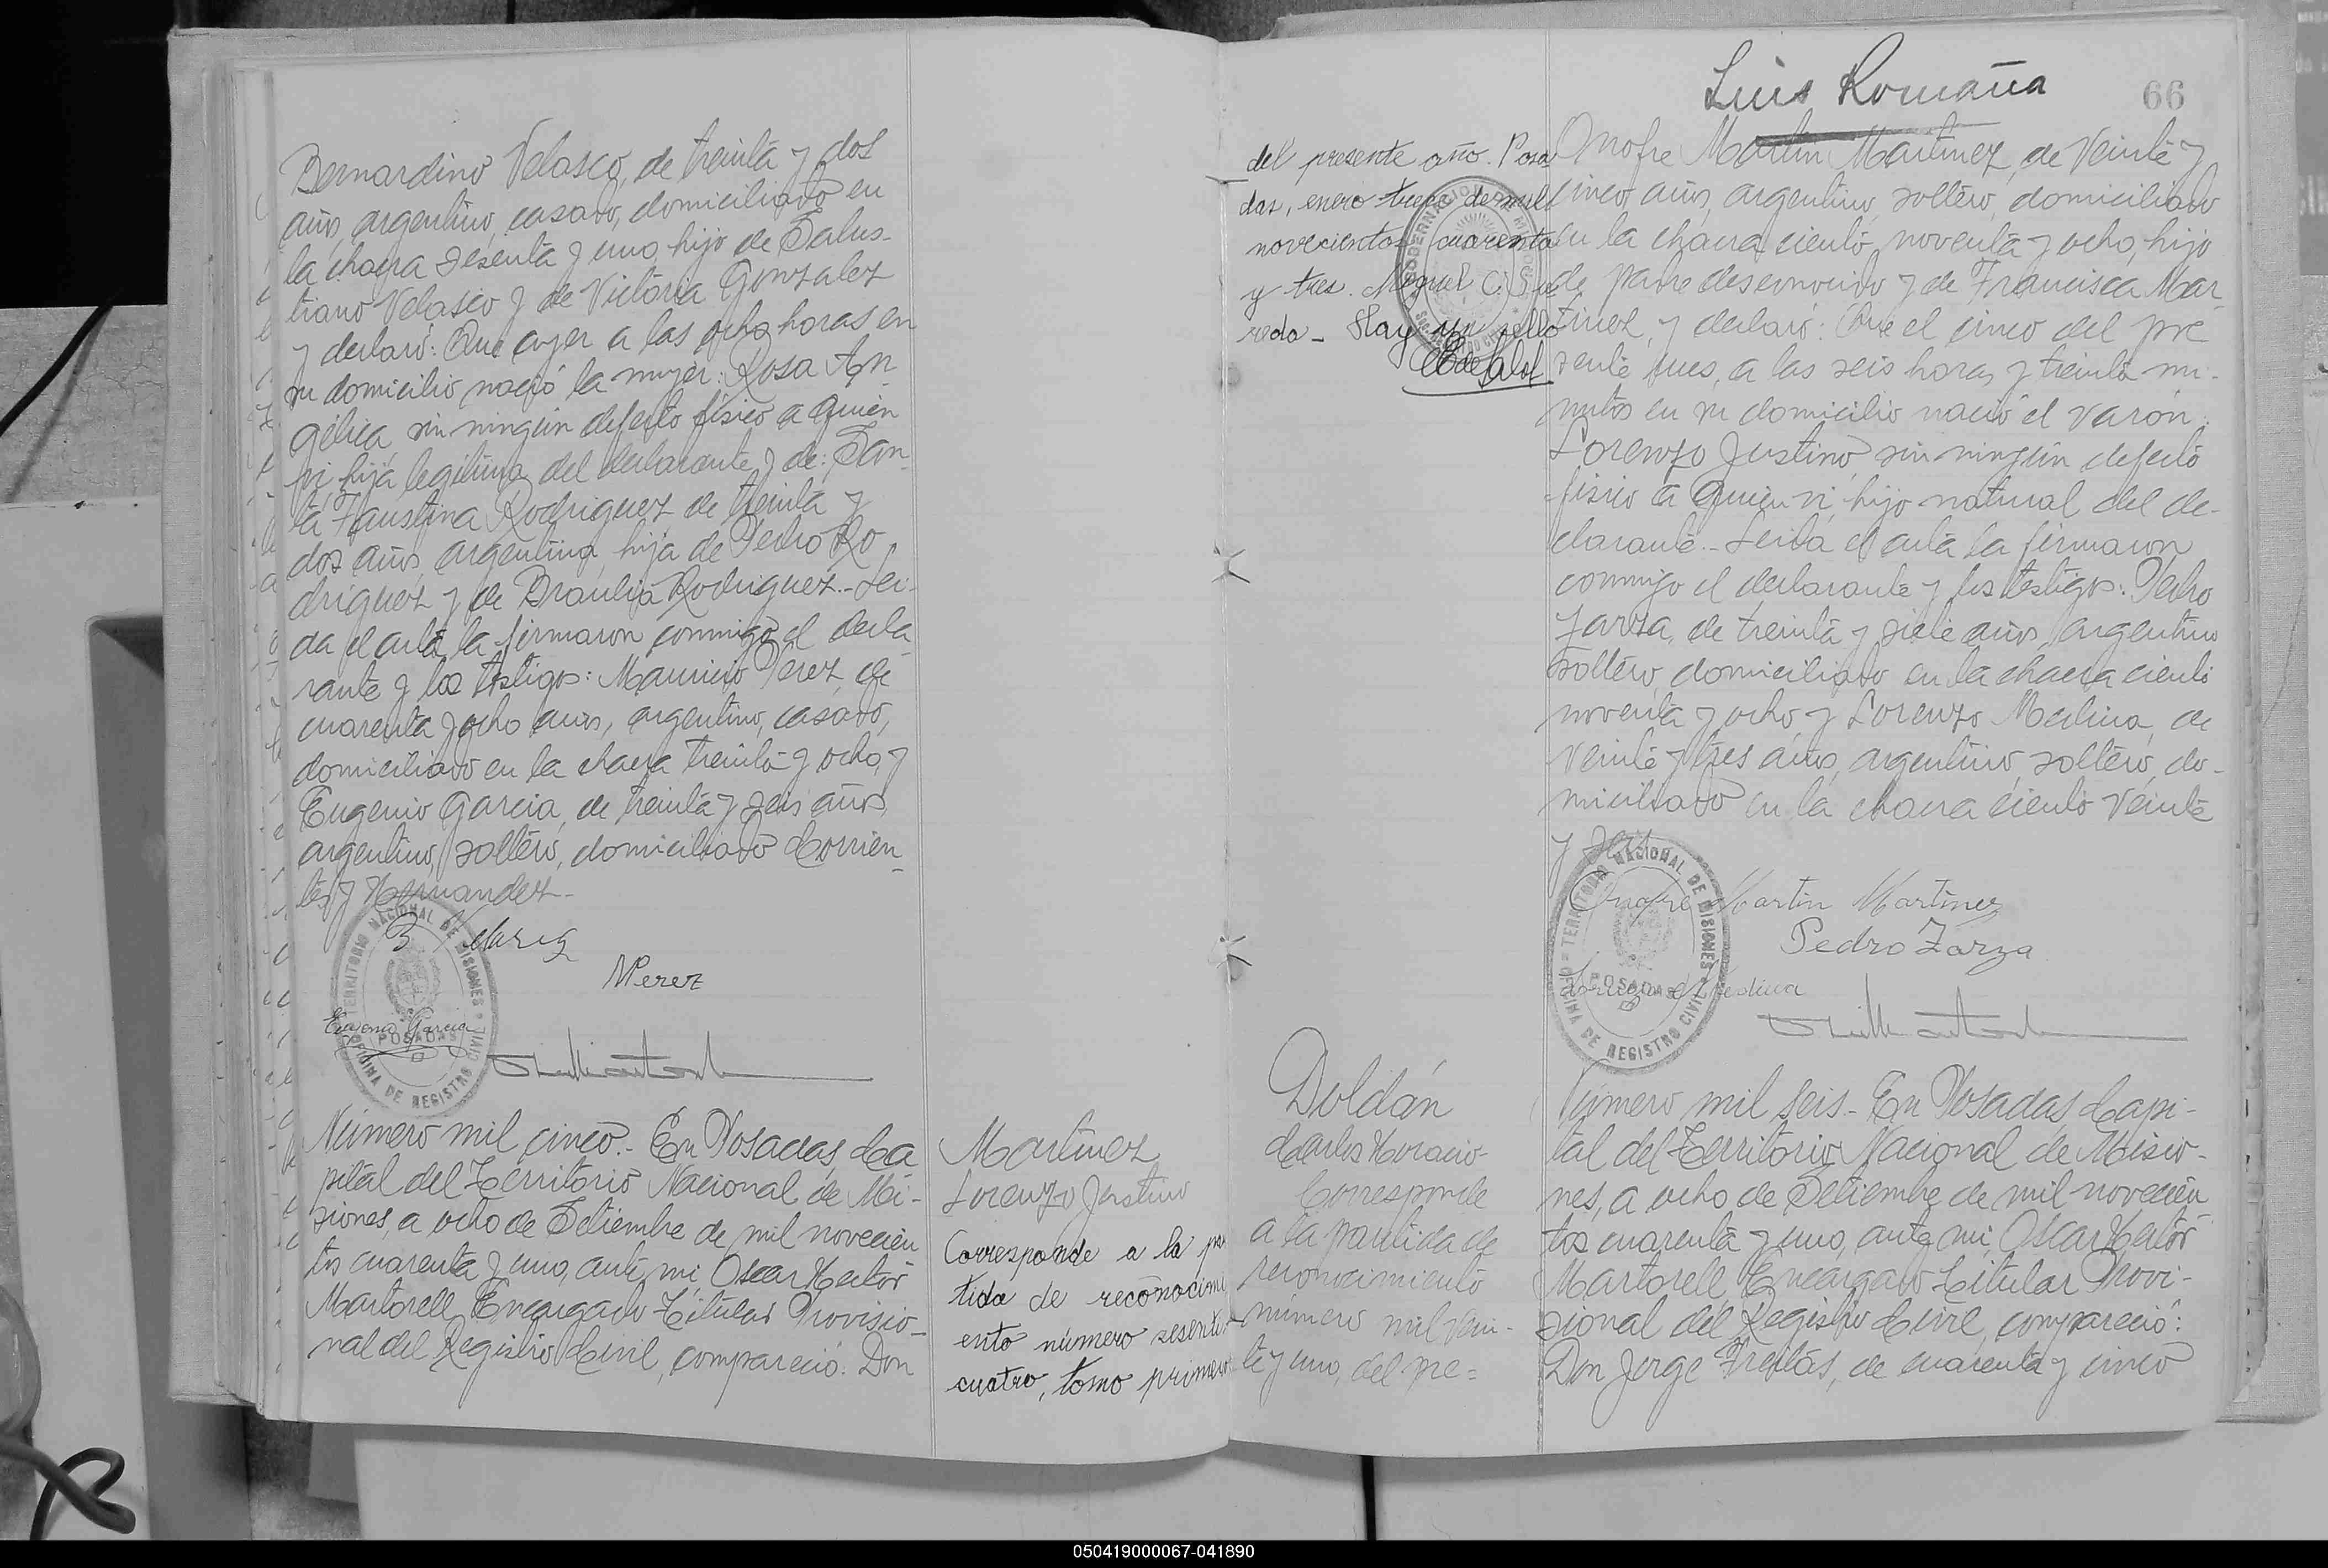 Bernardino Velasco, de treinta y dos
años, argentino, casado, domiciliado en
la chacra sesenta y uno, hijo de Salus-
tiano Velasco y de Victoria Gonzalez
y declaró: Que ayer a las ocho horas en
su domicilio nació la mujer: Rosa An-
gélica, sin ningún defecto físico a quien
vi, hija legítima del declarante y de: San-
ta Faustina Rodriguez, de treinta y
dos años, argentina, hija de Pedro Ro
driguez y de Braulia Rodriguez.- Lei-
da el acta, la firmaron conmigo el decla-
rante y los testigos: Mauricio Perez, de
cuarenta y ocho años, argentino, casado,
domiciliado en la chacra treinta y ocho, y
Eugenio Garcia, de treinta y seis años,
argentino, soltero, domiciliado Corrien-
tes y Hernandez.-
TERRITORIO NACIONAL DE MISIONES
POSADAS
OFICINA DE REGISTRO CIVIL
MPerez
Eugenio Garcia
Número mil cinco.- En Posadas, Ca
pital del Territorio Nacional de Mi-
siones, a ocho de Setiembre de mil novecien
tos cuarenta y uno, ante mi, Oscar Hector
Martorell, Encargado Titular Provisio-
nal del Registro Civil, compareció: Don
Martinez
Lorenzo Justino
Corresponde a la par
tida de reconocimi
ento número sesenta
cuatro, tomo primero
Luis Romaña
66
del presente año. Posa
das, enero trece de mil
novecientos cuarenta
y tres. Miguel C.
redo - Hay un sello
Onofre Martin Martinez, de veinte y
cinco años, argentino, soltero, domiciliado
en la chacra ciento noventa y ocho, hijo
de padre desconocido y de Francisca Mar
tinez, y declaró: Que el cinco del pre
sente mes, a las seis horas y treinta mi-
nutos en su domicilio nació el varón:
Lorenzo Justino, sin ningún defecto
físico a quien vi, hijo natural del de-
clarante.- Leida el acta la firmaron
conmigo el declarante y los testigos: Pedro
Zarza, de treinta y siete años, argentino
soltero, domiciliado en la chacra ciento
noventa y ocho y Lorenzo Medina, de
veinte y tres años, argentino, soltero, do-
miciliado en la chacra ciento veinte
y seis
TERRITORIO NACIONAL DE MISIONES
POSADAS
OFICINA DE REGISTRO CIVIL
Onofre Martin Martinez
Pedro Zarza
Lorenzo Medina
Doldán
Carlos Horacio-
Corresponde
a la partida de
reconocimiento
número mil vein-
te y uno, del pre=
Número mil seis.- En Posadas, Capi-
tal del Territorio Nacional de Misio-
nes, a ocho de Setiembre de mil novecien
tos cuarenta y uno, ante mi, Oscar Hector
Martorell, Encargado Titular Provi-
sional del Registro Civil, compareció:
Don Jorge Freitas, de cuarenta y cinco
050419000067-041890